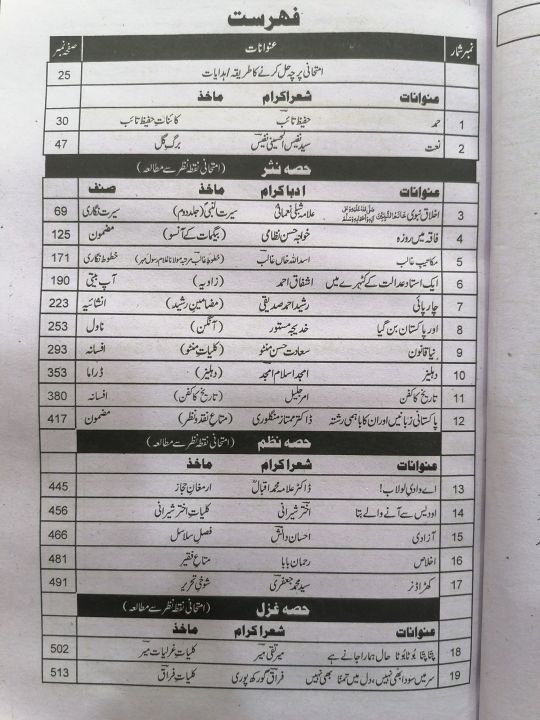 فہرست
نمبر شمار عنوانات صفحہ نمبر
امتحانی پرچہ حل کرنے کا طریقہ/ہدایات 25
عنوانات شعرا کرام ماخذ
1 حمد حفیظ تائبؔ کائناتِ حفیظ تائب 30
2 نعت سید نفیس الحسینی نفیسؔ برگِ گل 47
حصہ نثر (امتحانی نقطۂ نظر سے مطالعہ)
عنوانات ادبا کرام ماخذ صنف
3 اخلاقِ نبوی علامہ شبلی نعمانیؒ سیرت النبیؐ (جلد دوم) سیرت نگاری 69
4 فاقہ میں روزہ خواجہ حسن نظامی (بیگمات کے آنسو) مضمون 125
5 مکاتیبِ غالب اسد اللہ خاں غالبؔ (خطوطِ غالب مرتبہ مولانا غلام رسول مہر) خطوط نگاری 171
6 ایک استاد عدالت کے کٹہرے میں اشفاق احمد (زاویہ) آپ بیتی 190
7 چارپائی رشید احمد صدیقی (مضامینِ رشید) انشائیہ 223
8 اور پاکستان بن گیا خدیجہ مستور (آنگن) ناول 253
9 نیا قانون سعادت حسن منٹو (کلیاتِ منٹو) افسانہ 293
10 دہلیز امجد اسلام امجدؔ (دہلیز) ڈراما 353
11 تاریخ کا کفن امر جلیل (تاریخ کا کفن) افسانہ 380
12 پاکستانی زبانیں اور ان کا باہمی رشتہ ڈاکٹر ممتاز منگلوری (متاعِ نقد و نظر) مضمون 417
حصہ نظم (امتحانی نقطۂ نظر سے مطالعہ)
عنوانات شعرا کرام ماخذ
13 اے وادیِ لولاب! ڈاکٹر علامہ محمد اقبالؒ ارمغانِ حجاز 445
14 او دیس سے آنے والے بتا اختر شیرانی کلیاتِ اختر شیرانی 456
15 آزادی احسان دانشؔ فصلِ سلاسل 466
16 اخلاص رحمان بابا متاعِ فقیر 481
17 کھڑا ڈنر سید محمد جعفری شوخیِ تحریر 491
حصہ غزل (امتحانی نقطۂ نظر سے مطالعہ)
عنوانات شعرا کرام ماخذ
18 پتا پتا بُوٹا بُوٹا حال ہمارا جانے ہے میر تقی میرؔ کلیاتِ غزلیاتِ میر 502
19 سر میں سودا بھی نہیں، دل میں تمنا بھی نہیں فراقؔ گورکھ پوری کلیاتِ فراق 513